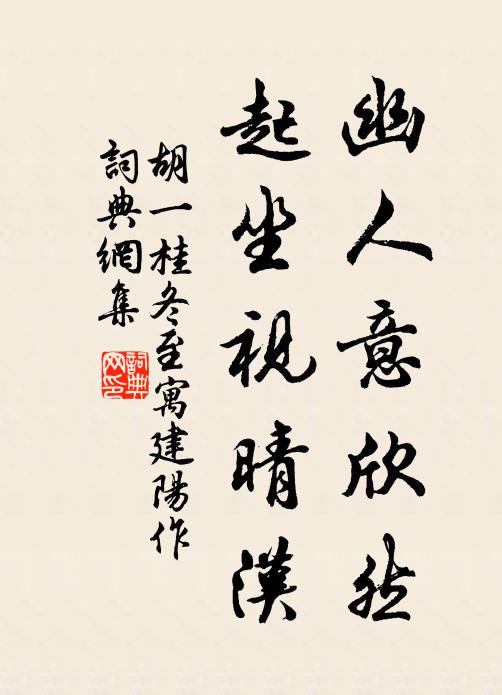 幽人意欣然
起坐視晴漢
胡一桂冬至寓建陽作
詞典網集
詞典
网印